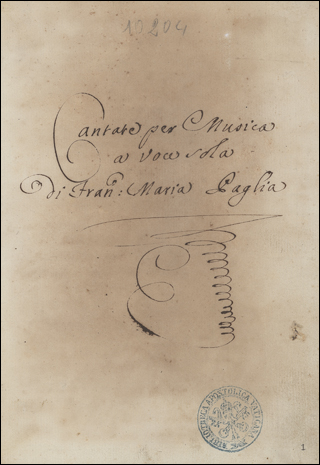 10204
Cantate per Musica
a voce sola
di Fran: Maria Paglia
BIBLIOTHECA APOSTOLICA VATICANA
1